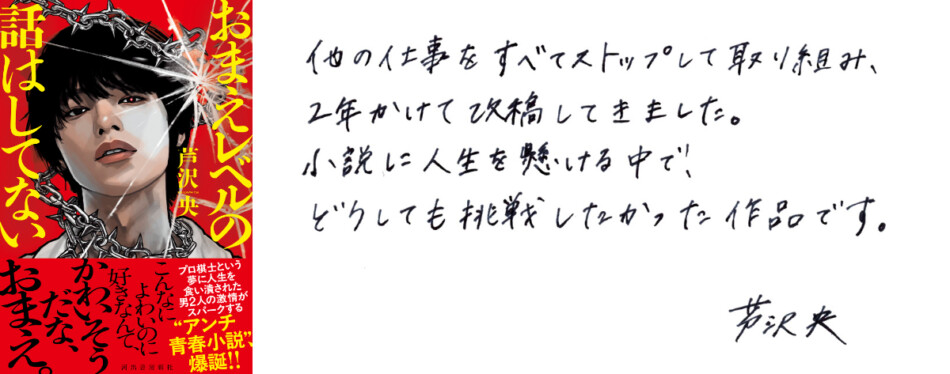 おまえレベルの
話はしてない
芦沢央
プロ棋士という
夢に人生を
食い潰された
男2人の激情が
スパークする
“アンチ
青春小説”、
爆誕!!
こんなに
よわいのに
好きなんて、
かわいそう
だな、
おまえ。
河出書房新社
他の仕事をすべてストップして取り組み、
2年かけて改稿してきました。
小説に人生を懸ける中で、
どうしても挑戦したかった作品です。
芦沢央